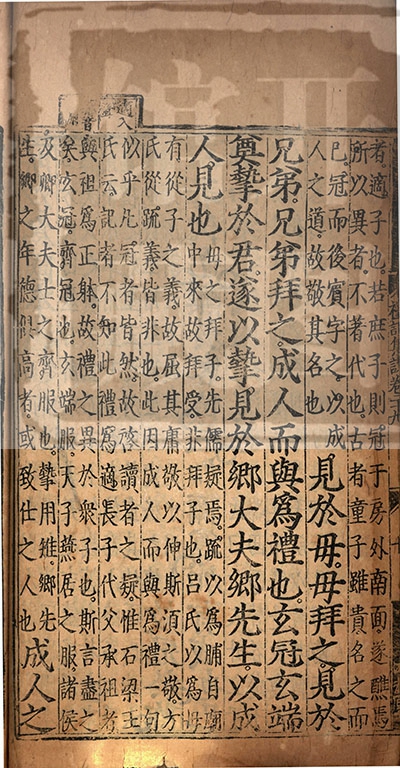 者適子也若庶子則冠于房外南面遂醮焉
所以異者不著代也古者童子雖貴名之而
已冠而後賓字之以成
人之道故敬其名也
見於母母拜之見於
兄弟兄弟拜之成人而與爲禮也玄冠玄端
奠摯於君遂以摯見於鄉大夫鄉先生以成
人見也
母之拜子先儒疑焉疏以爲脯自廟
中來故拜受非拜子也呂氏以爲母
有從子之義故屈其庸敬以伸斯須之敬方
氏從疏義皆非也此因成人而與爲禮一句
似乎凡冠者皆然故啓讀者之疑惟石梁王
氏云記者不知此禮爲適長子代父承祖者
與祖爲正躰故禮之異於衆子也斯言盡之
矣玄冠齊冠也玄端服天子燕居之服諸侯
及卿大夫士之齊服也摯用雉鄉先
生鄉之年德俱高者或致仕之人也
成人之